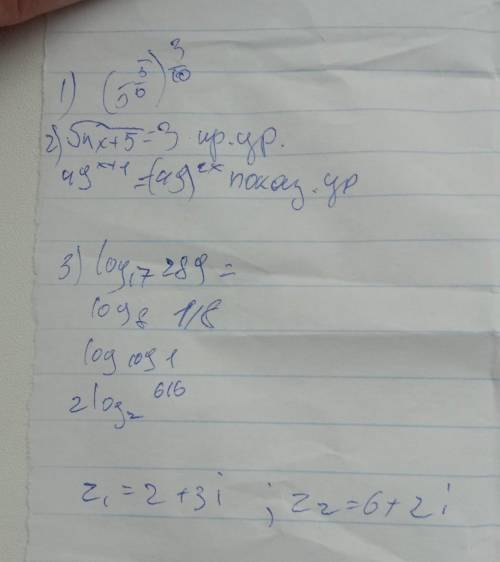 1) (5^5/6)^3/10
2) √4x+5=3 ир.ур.
49^x+1=(49)^2x показ.ур
3) log₁₇ 289=
log₈ 1/8
log
2log₂ 616
z₁=2+3i ; z₂=6+2i